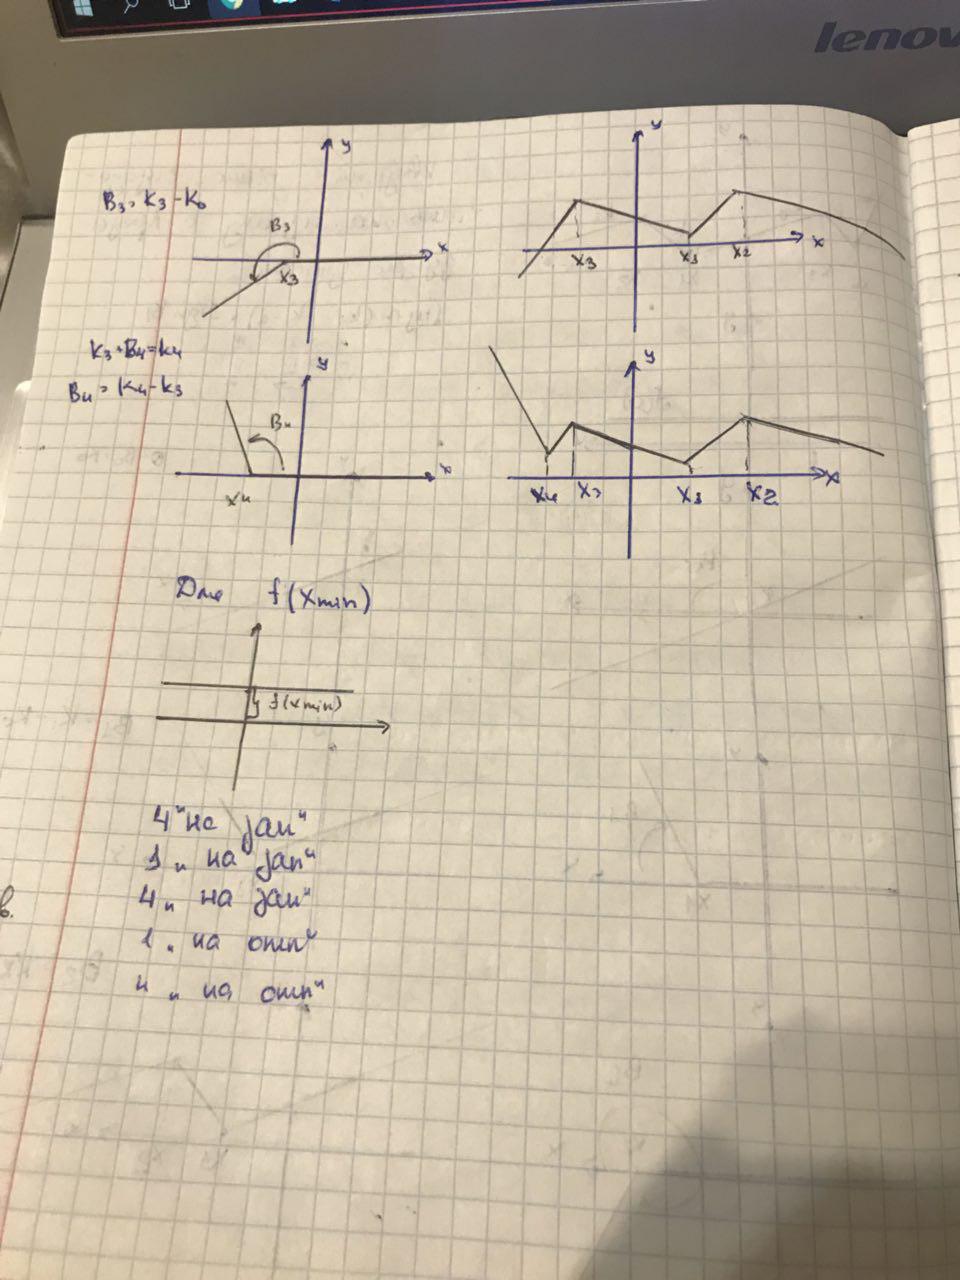 lenov
y
B₃ = K₃ - K₀
B₃
x
x₃
y
x₃
x₁
x₂
x
K₃ + B₄ = K₄
B₄ = K₄ - K₃
y
B₄
x
x₄
y
x₄
x₃
x₁
x₂
x
Для f(xmin)
f(xmin)
4 "на
1 " на
4 " на
1 " на отп"
4 " на отп"
в.